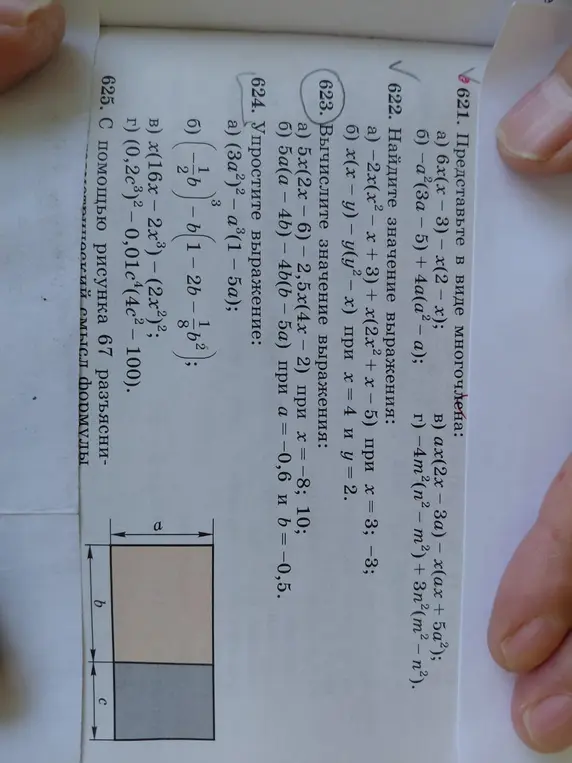 621. Представьте в виде многочлена:
а) 6x(x − 3) − x(2 − x);
в) ax(2x − 3a) − x(ax + 5a²);
б) −a²(3a − 5) + 4a(a² − a);
г) −4m²(n² − m²) + 3n²(m² − n²).
622. Найдите значение выражения:
а) −2x(x² − x + 3) + x(2x² + x − 5) при x = 3; −3;
б) x(x − y) − y(y² − x) при x = 4 и y = 2.
623. Вычислите значение выражения:
а) 5x(2x − 6) − 2,5x(4x − 2) при x = −8; 10;
б) 5a(a − 4b) − 4b(b − 5a) при a = −0,6 и b = −0,5.
624. Упростите выражение:
а) (3a²)² − a³(1 − 5a);
б) (−1/2 b)³ − b(1 − 2b − 1/8 b²);
в) x(16x − 2x³) − (2x²)²;
г) (0,2c³)² − 0,01c⁴(4c² − 100).
625. С помощью рисунка 67 разъясни-
смысл формулы
a
b
c